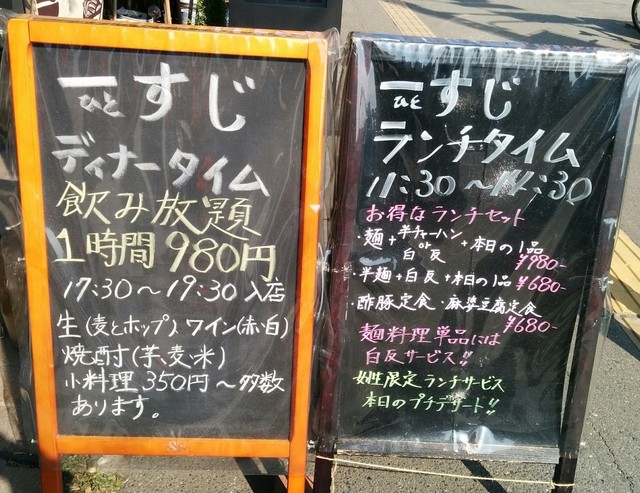 一すじ
ひと
ディナータイム
飲み放題
1時間 980円
17:30〜19:30 入店
生(麦とホップ)、ワイン(赤・白)
焼酎(芋、麦・米)
小料理 350円〜多数
あります。
一すじ
ひと
ランチタイム
11:30〜14:30
お得なランチセット
・麺+半チャーハン or 白反+本日の1品
¥980-
・半麺+白反+本日の1品 ¥680-
・酢豚定食・麻婆豆腐定食
¥680-
麺料理単品には
白反サービス!!
女性限定ランチサービス
本日のプチデザート!!